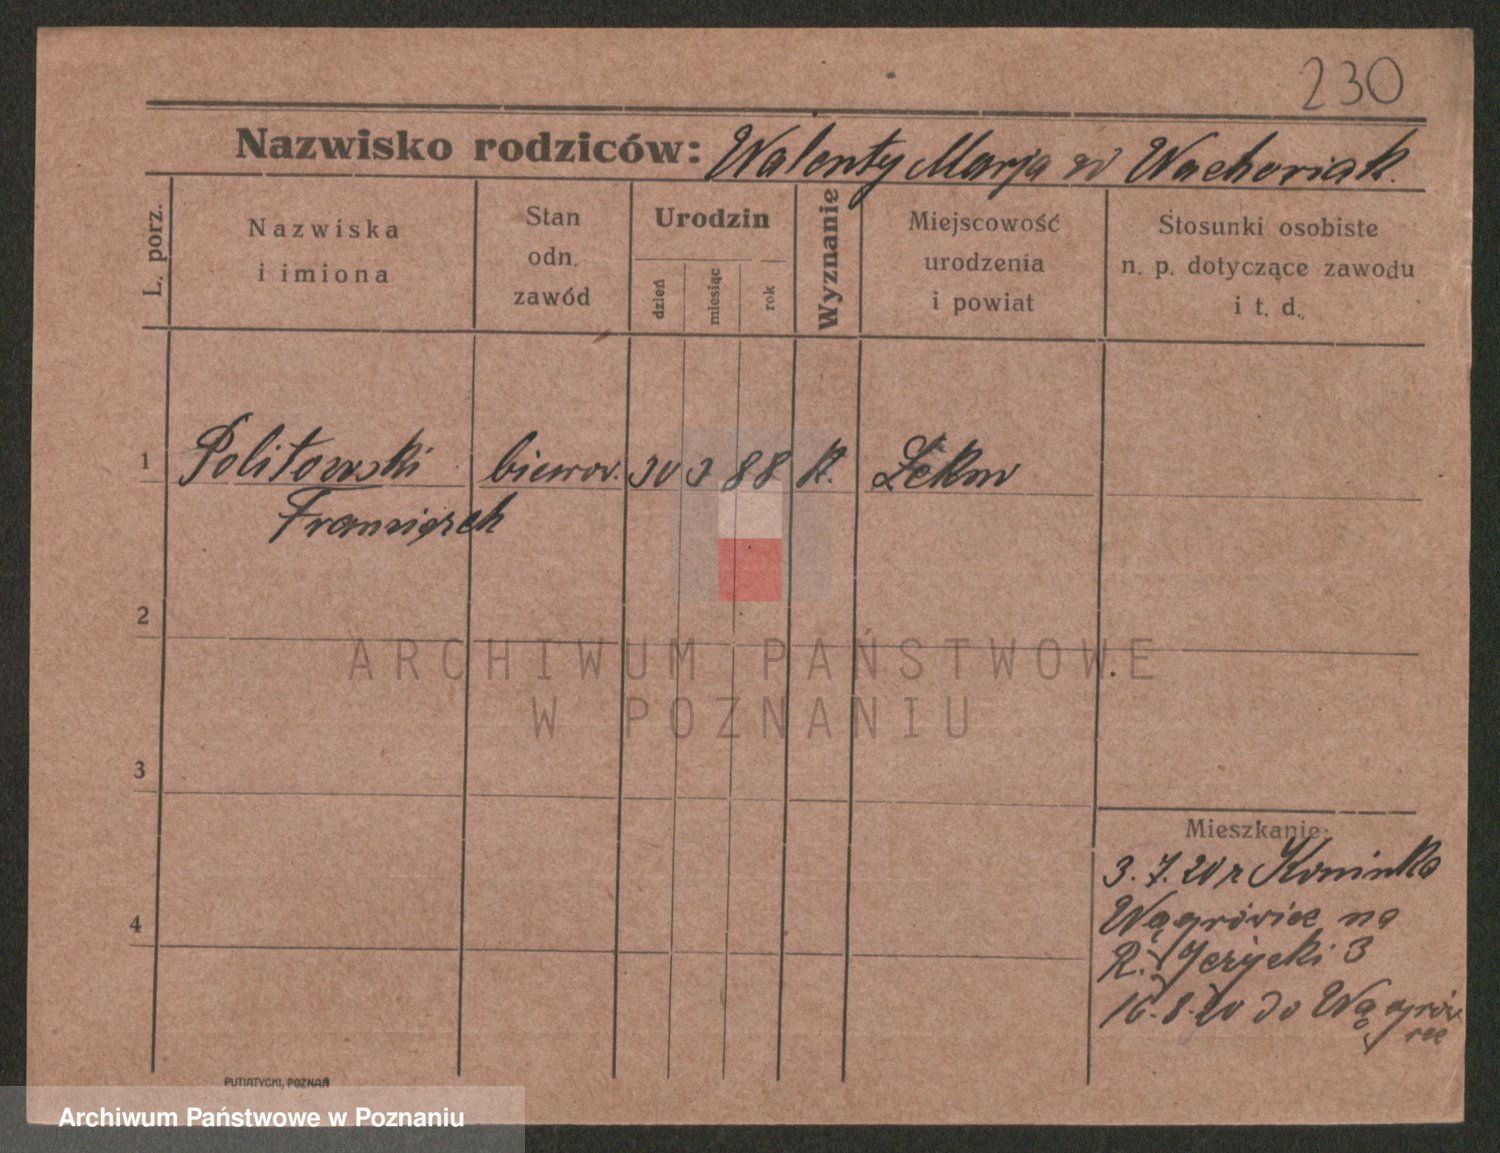 230
Nazwisko rodziców: Walenty Marja w Wachowiak.
L. porz.
Nazwiska
i imiona
Stan
odn.
zawód
Urodzin
dzień
miesiąc
rok
Wyznanie
Miejscowość
urodzenia
i powiat
Stosunki osobiste
n. p. dotyczące zawodu
i t. d.
1 Politowski 30 3 88 k. Łekno
Franciszek
2
3
4
ARCHIWUM PAŃSTWOWE
W POZNANIU
Mieszkanie:
3. 7. 20 r
Wągrówiec na
R. Jeżycki 3
16. 8. 20 do Wągrów
PUTIATYCKI, POZNAŃ
Archiwum Państwowe w Poznaniu